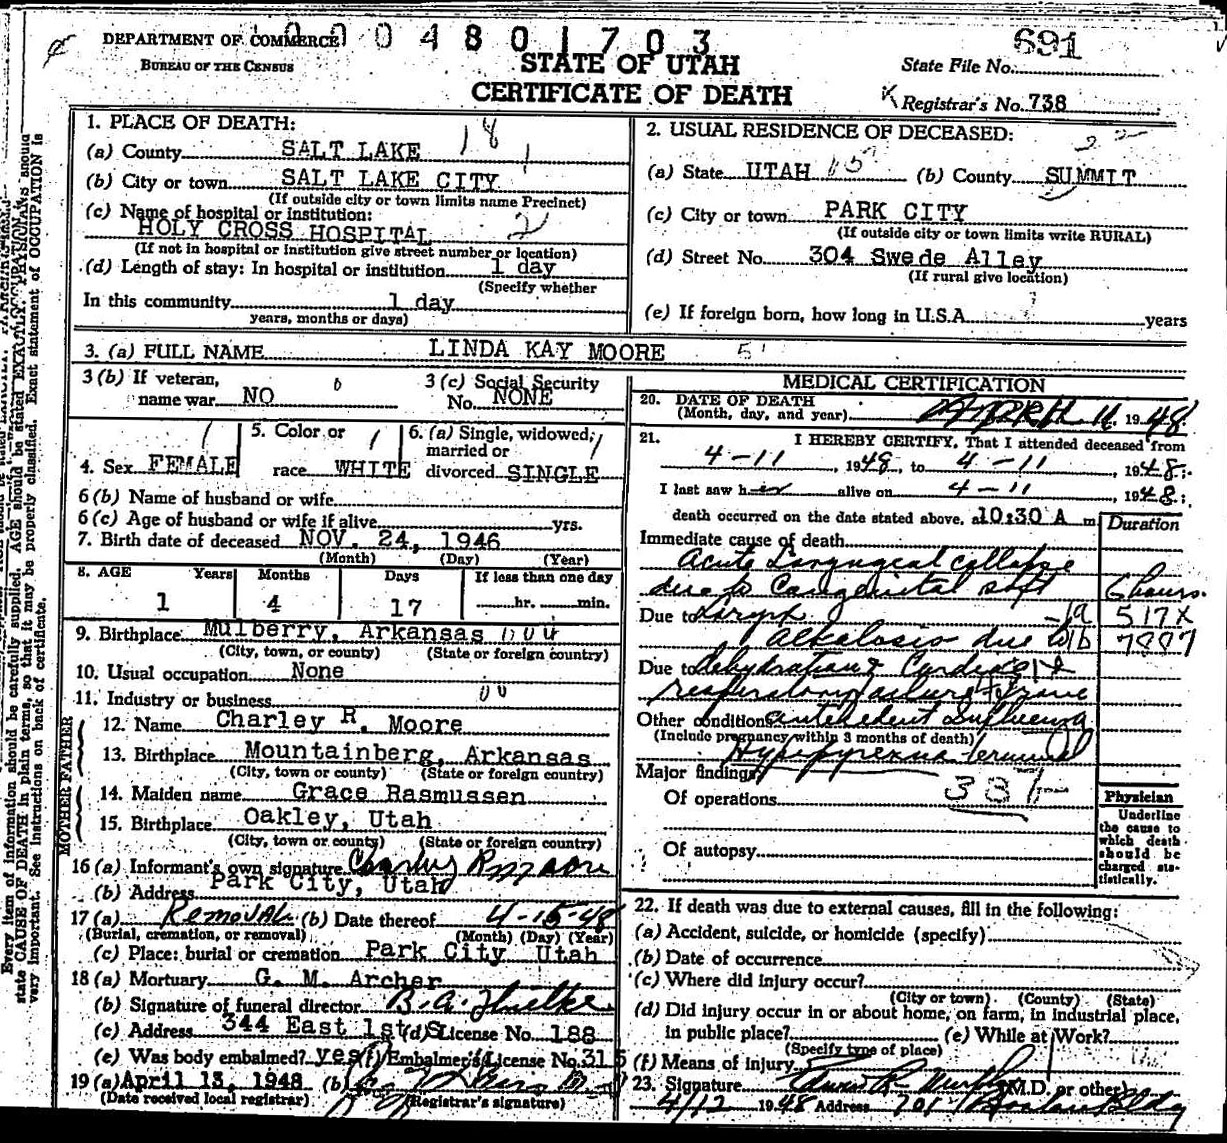 0004801703
DEPARTMENT OF COMMERCE
BUREAU OF THE CENSUS
STATE OF UTAH
CERTIFICATE OF DEATH
691
State File No.
Registrar's No. 738
1. PLACE OF DEATH: 18
(a) County SALT LAKE 1
(b) City or town SALT LAKE CITY
(If outside city or town limits name Precinct)
(c) Name of hospital or institution:
HOLY CROSS HOSPITAL 2
(If not in hospital or institution give street number or location)
(d) Length of stay: In hospital or institution 1 day
(Specify whether
In this community 1 day
years, months or days)
2. USUAL RESIDENCE OF DECEASED:
(a) State UTAH (b) County SUMMIT
(c) City or town PARK CITY
(If outside city or town limits write RURAL)
(d) Street No. 304 Swede Alley
(If rural give location)
(e) If foreign born, how long in U.S.A. years
3. (a) FULL NAME LINDA KAY MOORE 5
3 (b) If veteran,
name war NO
3 (c) Social Security
No. NONE
4. Sex FEMALE
5. Color or
race WHITE
6. (a) Single, widowed,
married or
divorced SINGLE
6 (b) Name of husband or wife
6 (c) Age of husband or wife if alive yrs.
7. Birth date of deceased NOV. 24, 1946
(Month) (Day) (Year)
8. AGE Years Months Days If less than one day
1 4 17 hr. min.
9. Birthplace Mulberry, Arkansas
(City, town, or county) (State or foreign country)
10. Usual occupation None
11. Industry or business
FATHER
12. Name Charley R. Moore
13. Birthplace Mountainberg, Arkansas
(City, town or county) (State or foreign country)
MOTHER
14. Maiden name Grace Rasmussen
15. Birthplace Oakley, Utah
(City, town or county) (State or foreign country)
16 (a) Informant's own signature Charley R Moore
(b) Address Park City, Utah
17 (a) Removal (b) Date thereof 4-15-48
(Burial, cremation, or removal) (Month) (Day) (Year)
(c) Place: burial or cremation Park City Utah
18 (a) Mortuary G. M. Archer
(b) Signature of funeral director B. A.
(c) Address 344 East 1st S (d) License No. 188
(e) Was body embalmed? yes (f) Embalmer's License No. 315
19 (a) April 13, 1948 (b)
(Date received local registrar) (Registrar's signature)
MEDICAL CERTIFICATION
20. DATE OF DEATH
(Month, day, and year) April 11 1948
21. I HEREBY CERTIFY, That I attended deceased from
4-11, 1948, to 4-11, 1948;
I last saw her alive on 4-11, 1948;
death occurred on the date stated above, a 10:30 A m
Duration
Immediate cause of death
Acute Laryngeal collapse
due to Congenital soft 6 hours.
Due to Larynx 19 517X
alkalosis due to
Due to dehydration & Cardiac &
respiratory failure
Other conditions antecedent Influenza
(Include pregnancy within 3 months of death)
Hyperpyrexia terminal
Major findings
Of operations
Of autopsy
Physician
Underline
the cause to
which death
should be
charged sta-
tistically.
22. If death was due to external causes, fill in the following:
(a) Accident, suicide, or homicide (specify)
(b) Date of occurrence
(c) Where did injury occur?
(City or town) (County) (State)
(d) Did injury occur in or about home, on farm, in industrial place,
in public place? (e) While at Work?
(Specify type of place)
(f) Means of injury
23. Signature Murphy (M.D. or other)
4/12 1948 Address 701 Boston Bldg
Every item of information should be carefully supplied. AGE should be stated EXACTLY. PHYSICIANS should
state CAUSE OF DEATH in plain terms, so that it may be properly classified. Exact statement of OCCUPATION is
very important. See instructions on back of certificate.